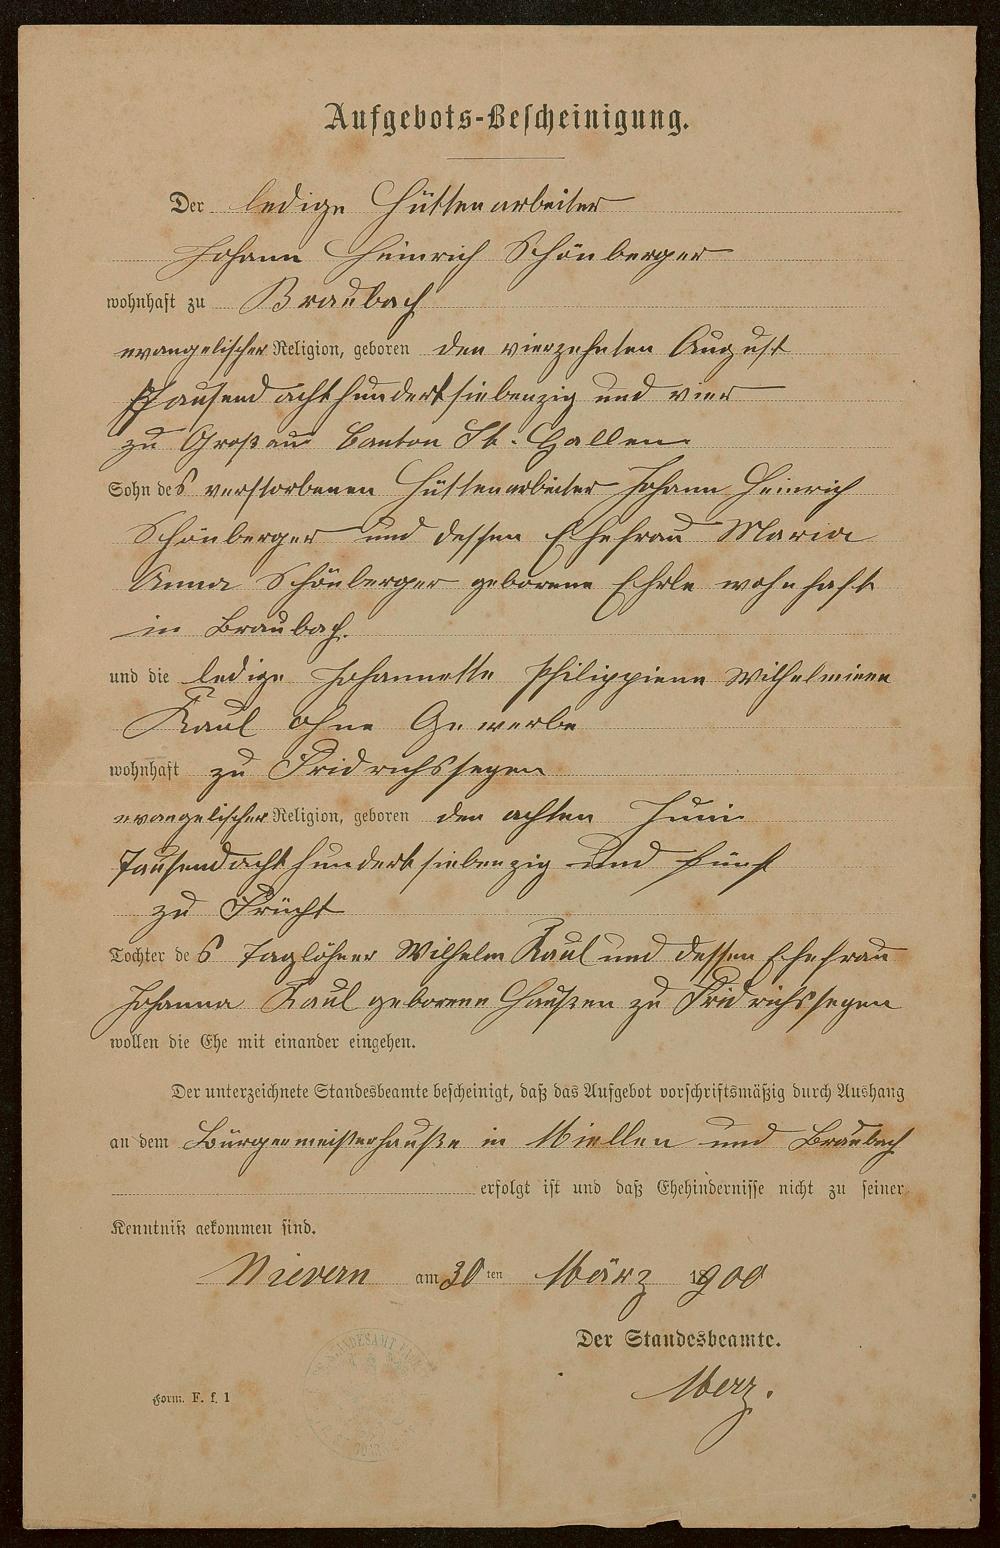 Aufgebots-Bescheinigung.
Der ledige Hüttenarbeiter
Johann Heinrich Schönberger
wohnhaft zu Braubach
evangelischer Religion, geboren den vierzehnten August
tausend acht hundert siebenzig und vier
zu Großau Canton St. Gallen
Sohn des verstorbenen Hüttenarbeiter Johann Heinrich
Schönberger und dessen Ehefrau Maria
Anna Schönberger geborene Ehrle wohnhaft
in Braubach.
und die ledige Johannette Philippiene Wilhelmiene
Kaul ohne Gewerbe
wohnhaft zu Fridrichssegen
evangelischer Religion, geboren den achten Juni
Tausend acht hundert siebenzig und fünf
zu Frücht
Tochter des Taglöhner Wilhelm Kaul und dessen Ehefrau
Johanna Kaul geborene zu Fridrichssegen
wollen die Ehe mit einander eingehen.
Der unterzeichnete Standesbeamte bescheinigt, daß das Aufgebot vorschriftsmäßig durch Aushang
an dem Bürgermeisterhauße in Miellen und Braubach
erfolgt ist und daß Ehehindernisse nicht zu seiner
Kenntniß gekommen sind.
Nievern am 30ten März 1900
Der Standesbeamte.
Merz.
Form. F. f. 1